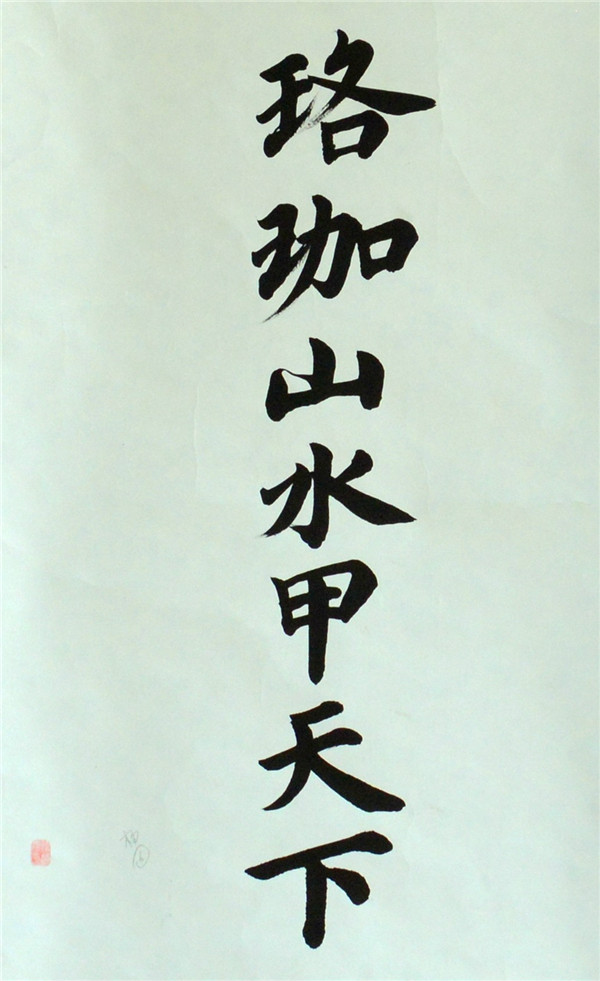 珞珈山水甲天下